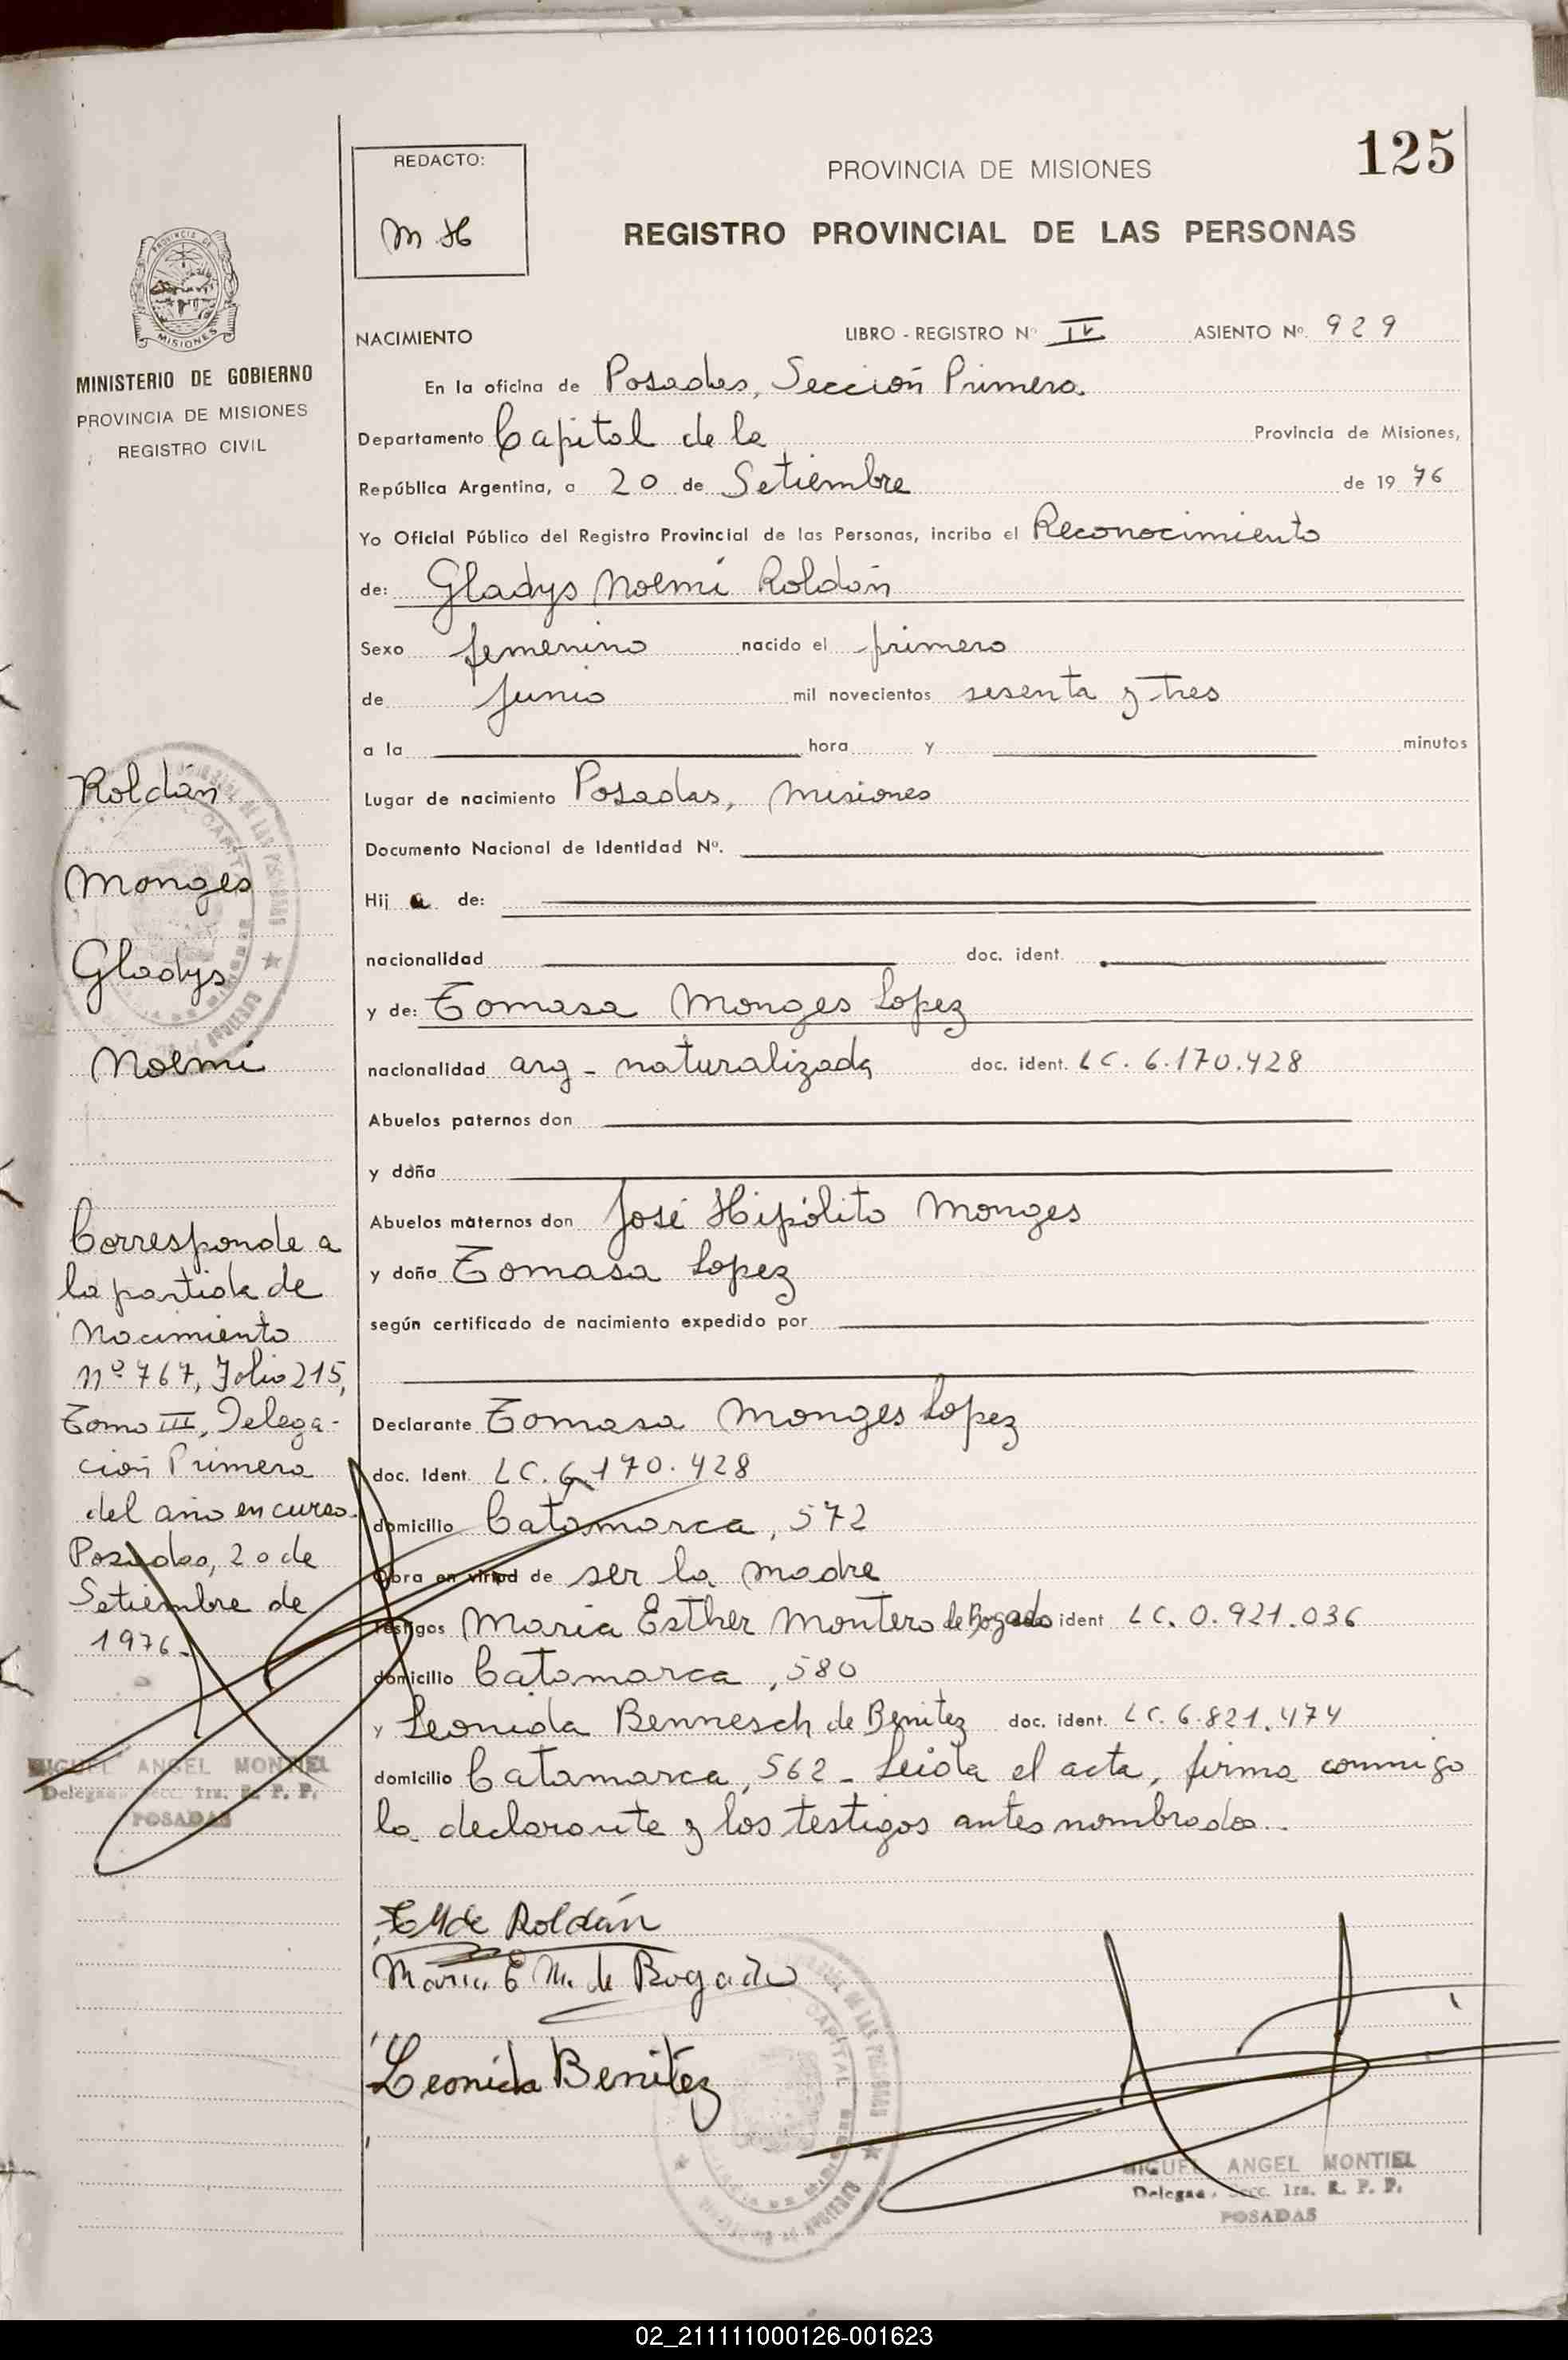 125
REDACTO:
M.H
PROVINCIA DE MISIONES
REGISTRO PROVINCIAL DE LAS PERSONAS
PROVINCIA DE
MISIONES
MINISTERIO DE GOBIERNO
PROVINCIA DE MISIONES
REGISTRO CIVIL
NACIMIENTO LIBRO - REGISTRO Nº IV ASIENTO Nº. 929
En la oficina de Posadas, Sección Primera.
Departamento Capital de la Provincia de Misiones,
República Argentina, a 20 de Setiembre de 1976
Yo Oficial Público del Registro Provincial de las Personas, inscribo el Reconocimiento
de: Gladys Noemí Roldán
Sexo femenino nacido el primero
de Junio mil novecientos sesenta y tres
a la hora y minutos
Lugar de nacimiento Posadas, Misiones
Documento Nacional de Identidad Nº.
Hija de:
nacionalidad doc. ident.
y de: Tomasa Monges Lopez
nacionalidad arg - naturalizada doc. ident. LC. 6.170.428
Abuelos paternos don
y doña
Abuelos maternos don José Hipólito Monges
y doña Tomasa Lopez
según certificado de nacimiento expedido por
Declarante Tomasa Monges Lopez
doc. Ident. LC. 6.170.428
domicilio Catamarca, 572
Obra en virtud de ser la madre
Testigos Maria Esther Montero de Bogado ident LC. 0.921.036
domicilio Catamarca, 580
y Leonida Bennesch de Benitez doc. ident. LC. 6.821.474
domicilio Catamarca, 562 - Leida el acta, firma conmigo
la declarante y los testigos antes nombrados.
T M de Roldán
Maria E M. de Bogado
Leonida Benítez
MIGUEL ANGEL MONTIEL
Delegado Secc. 1ra. R. P. P.
POSADAS
Roldán
Monges
Gladys
Noemí
Corresponde a
la partida de
Nacimiento
Nº 767, Folio 215,
Tomo III, Delega-
ción Primera
del año en curso.
Posadas, 20 de
Setiembre de
1976.
MIGUEL ANGEL MONTIEL
Delegado Secc. 1ra. R. P. P.
POSADAS
02_211111000126-001623